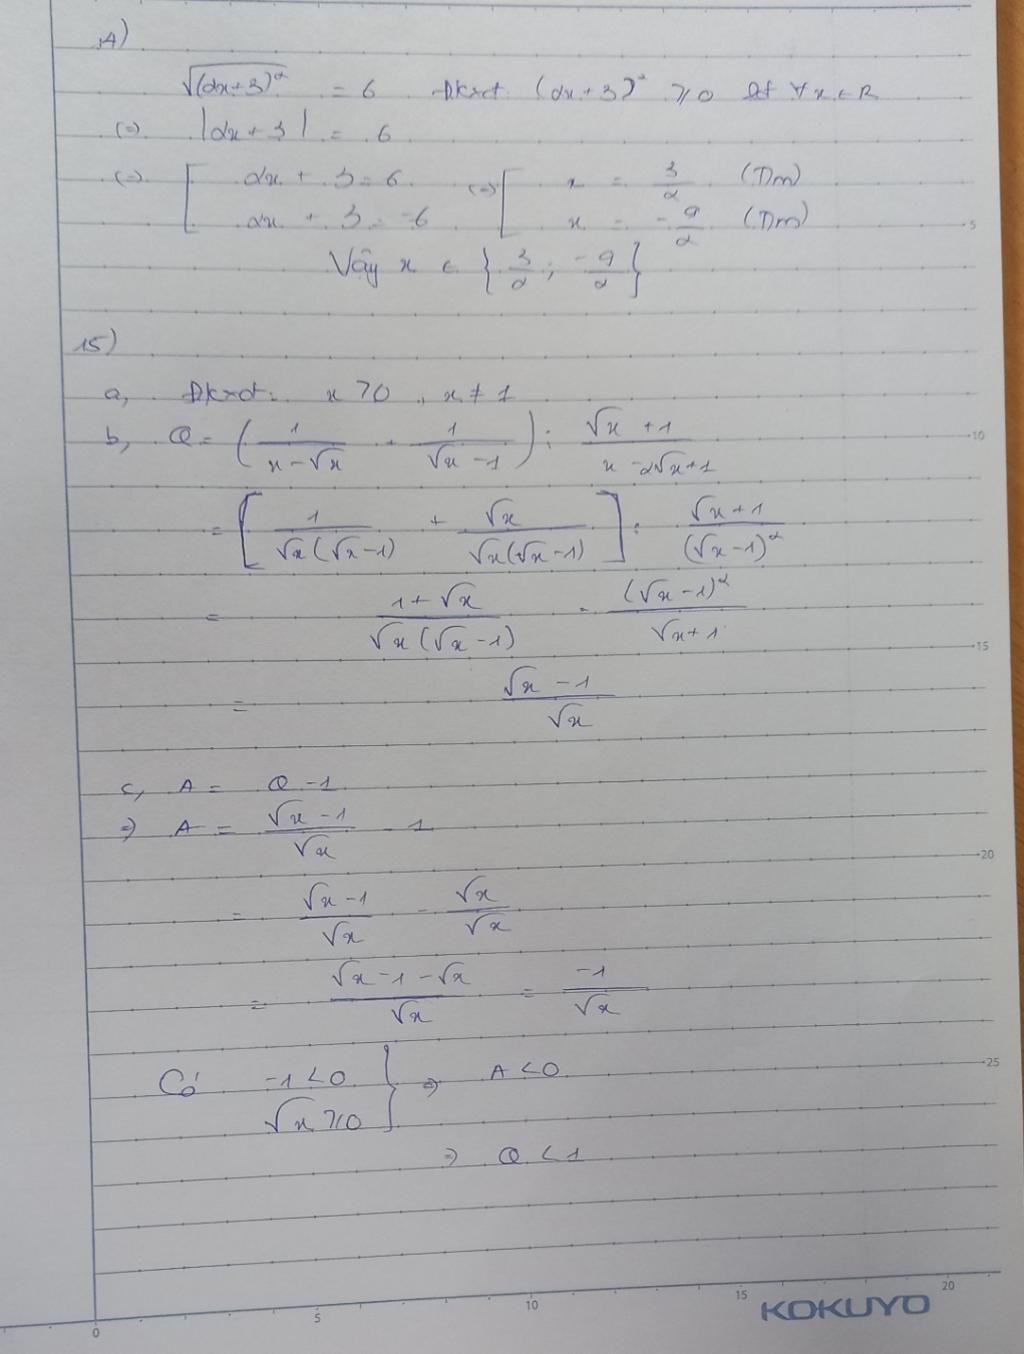 A)
√(2x+3)² = 6 Đkxđ: (2x+3)² ⩾0 ∀x∈R
(=) |2x+3| = 6
(=) [ 2x + 3 = 6 (=) [ x = 3/2 (Tm)
2x + 3 = -6 x = -9/2 (Tm)
Vậy x ∈ {3/2; -9/2}
15)
a, Đkxđ: x >0, x ≠ 1
b, Q = (1/(x-√x) + 1/(√x-1)) : (√x+1)/(x-2√x+1)
= [1/(√x(√x-1)) + √x/(√x(√x-1))] : (√x+1)/(√x-1)²
= (1+√x)/(√x(√x-1)) · (√x-1)²/(√x+1)
= (√x-1)/√x
c, A = Q - 1
=) A = (√x-1)/√x - 1
= (√x-1)/√x - √x/√x
= (√x-1-√x)/√x = -1/√x
Có -1 < 0 } =) A < 0
√x ⩾0
=) Q < 1
5
10
15
20
25
0 5 10 15 20
KOKUYO